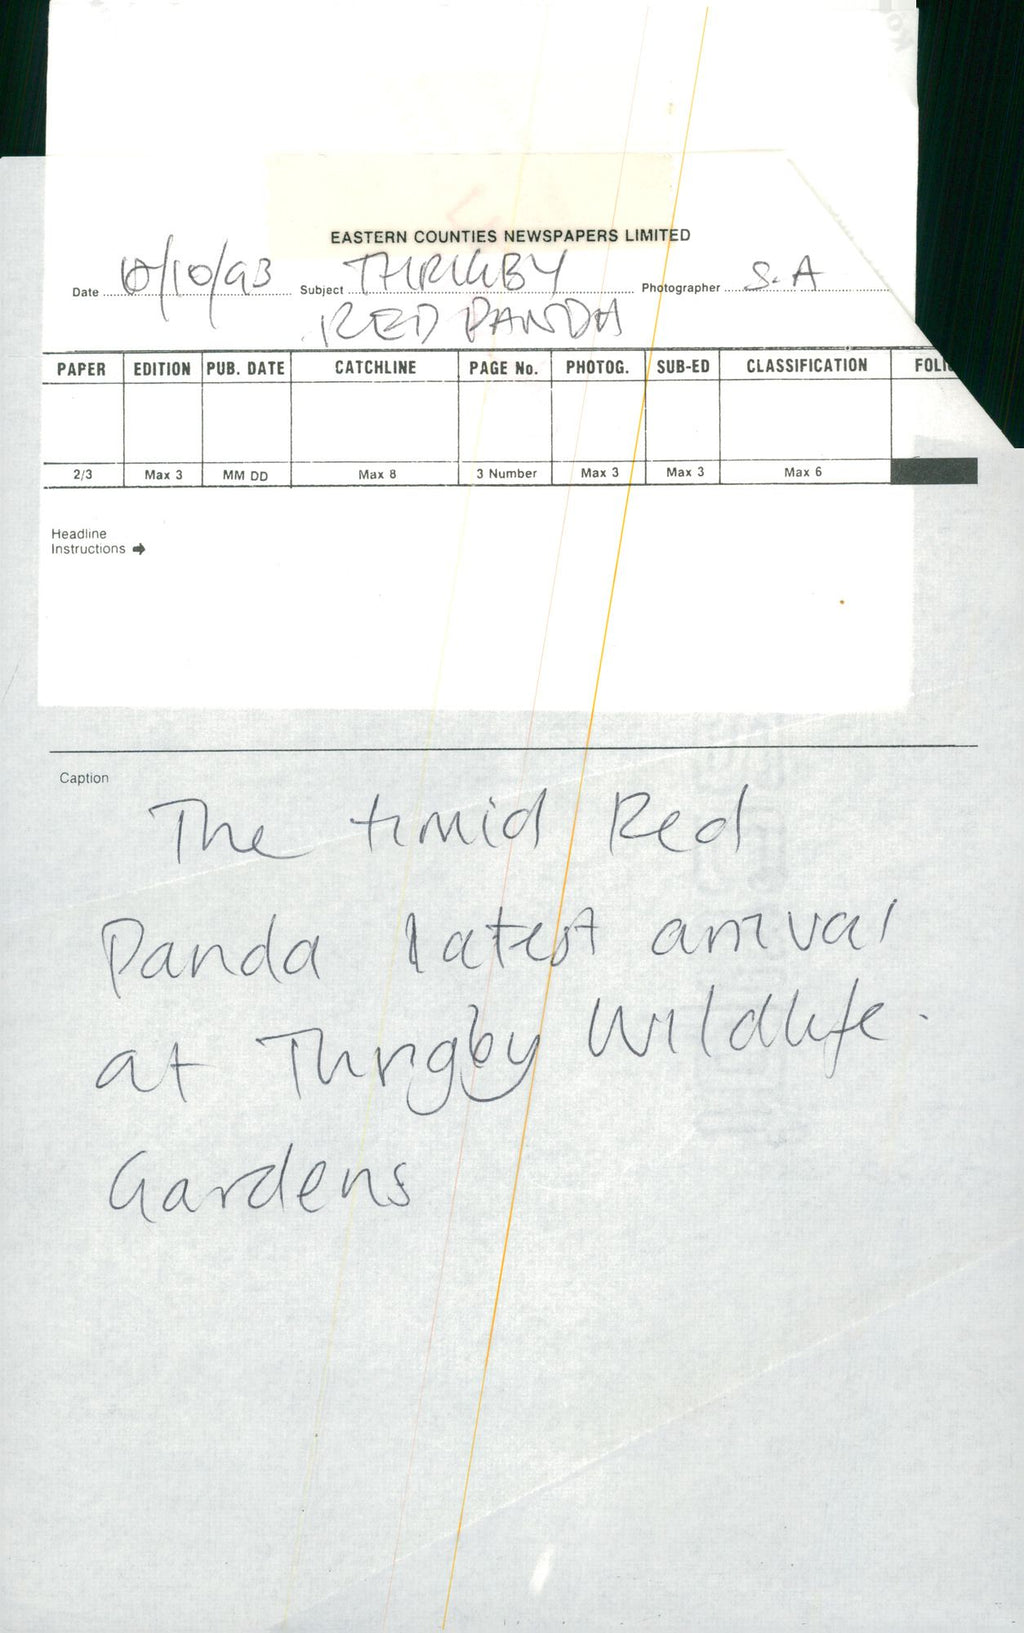 EASTERN COUNTIES NEWSPAPERS LIMITED
Date 10/10/93 Subject THRIGBY Photographer S.A
RED PANDA
PAPER EDITION PUB. DATE CATCHLINE PAGE No. PHOTOG. SUB-ED CLASSIFICATION
2/3 Max 3 MM DD Max 8 3 Number Max 3 Max 3 Max 6
Headline
Instructions
Caption
The timid Red
Panda latest arrival
at Thrigby Wildlife.
Gardens